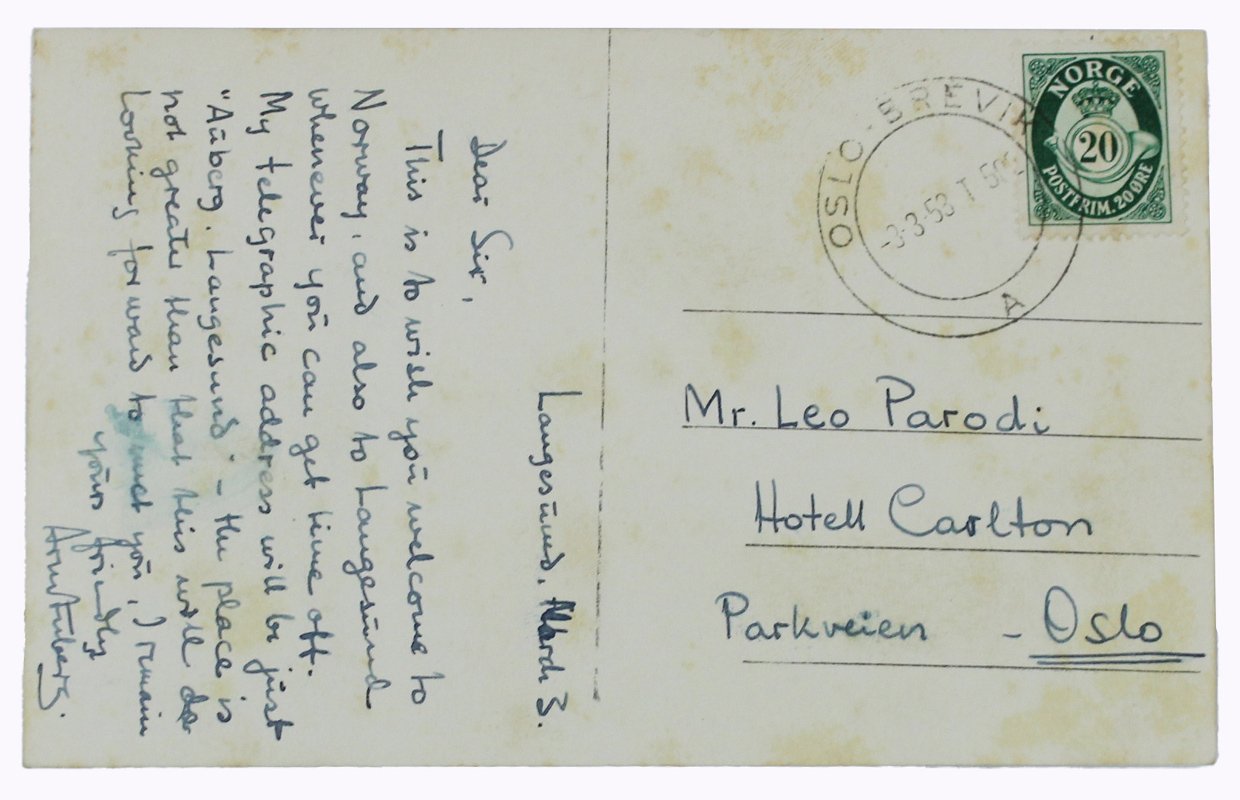 Langesund, March 3.
Dear Sir,
This is to wish you welcome to
Norway, and also to Langesund
whenever you can get time off.
My telegraphic address will be just
"Auberg. Langesund" – the place is
not greater than that this will do
Looking forward to meet you, I remain
yours friendly
NORGE
20
POSTFRIM. 20 ØRE
OSLO-BREVIK
-3-3-53 T
A
Mr. Leo Parodi
Hotell Carlton
Parkveien - Oslo